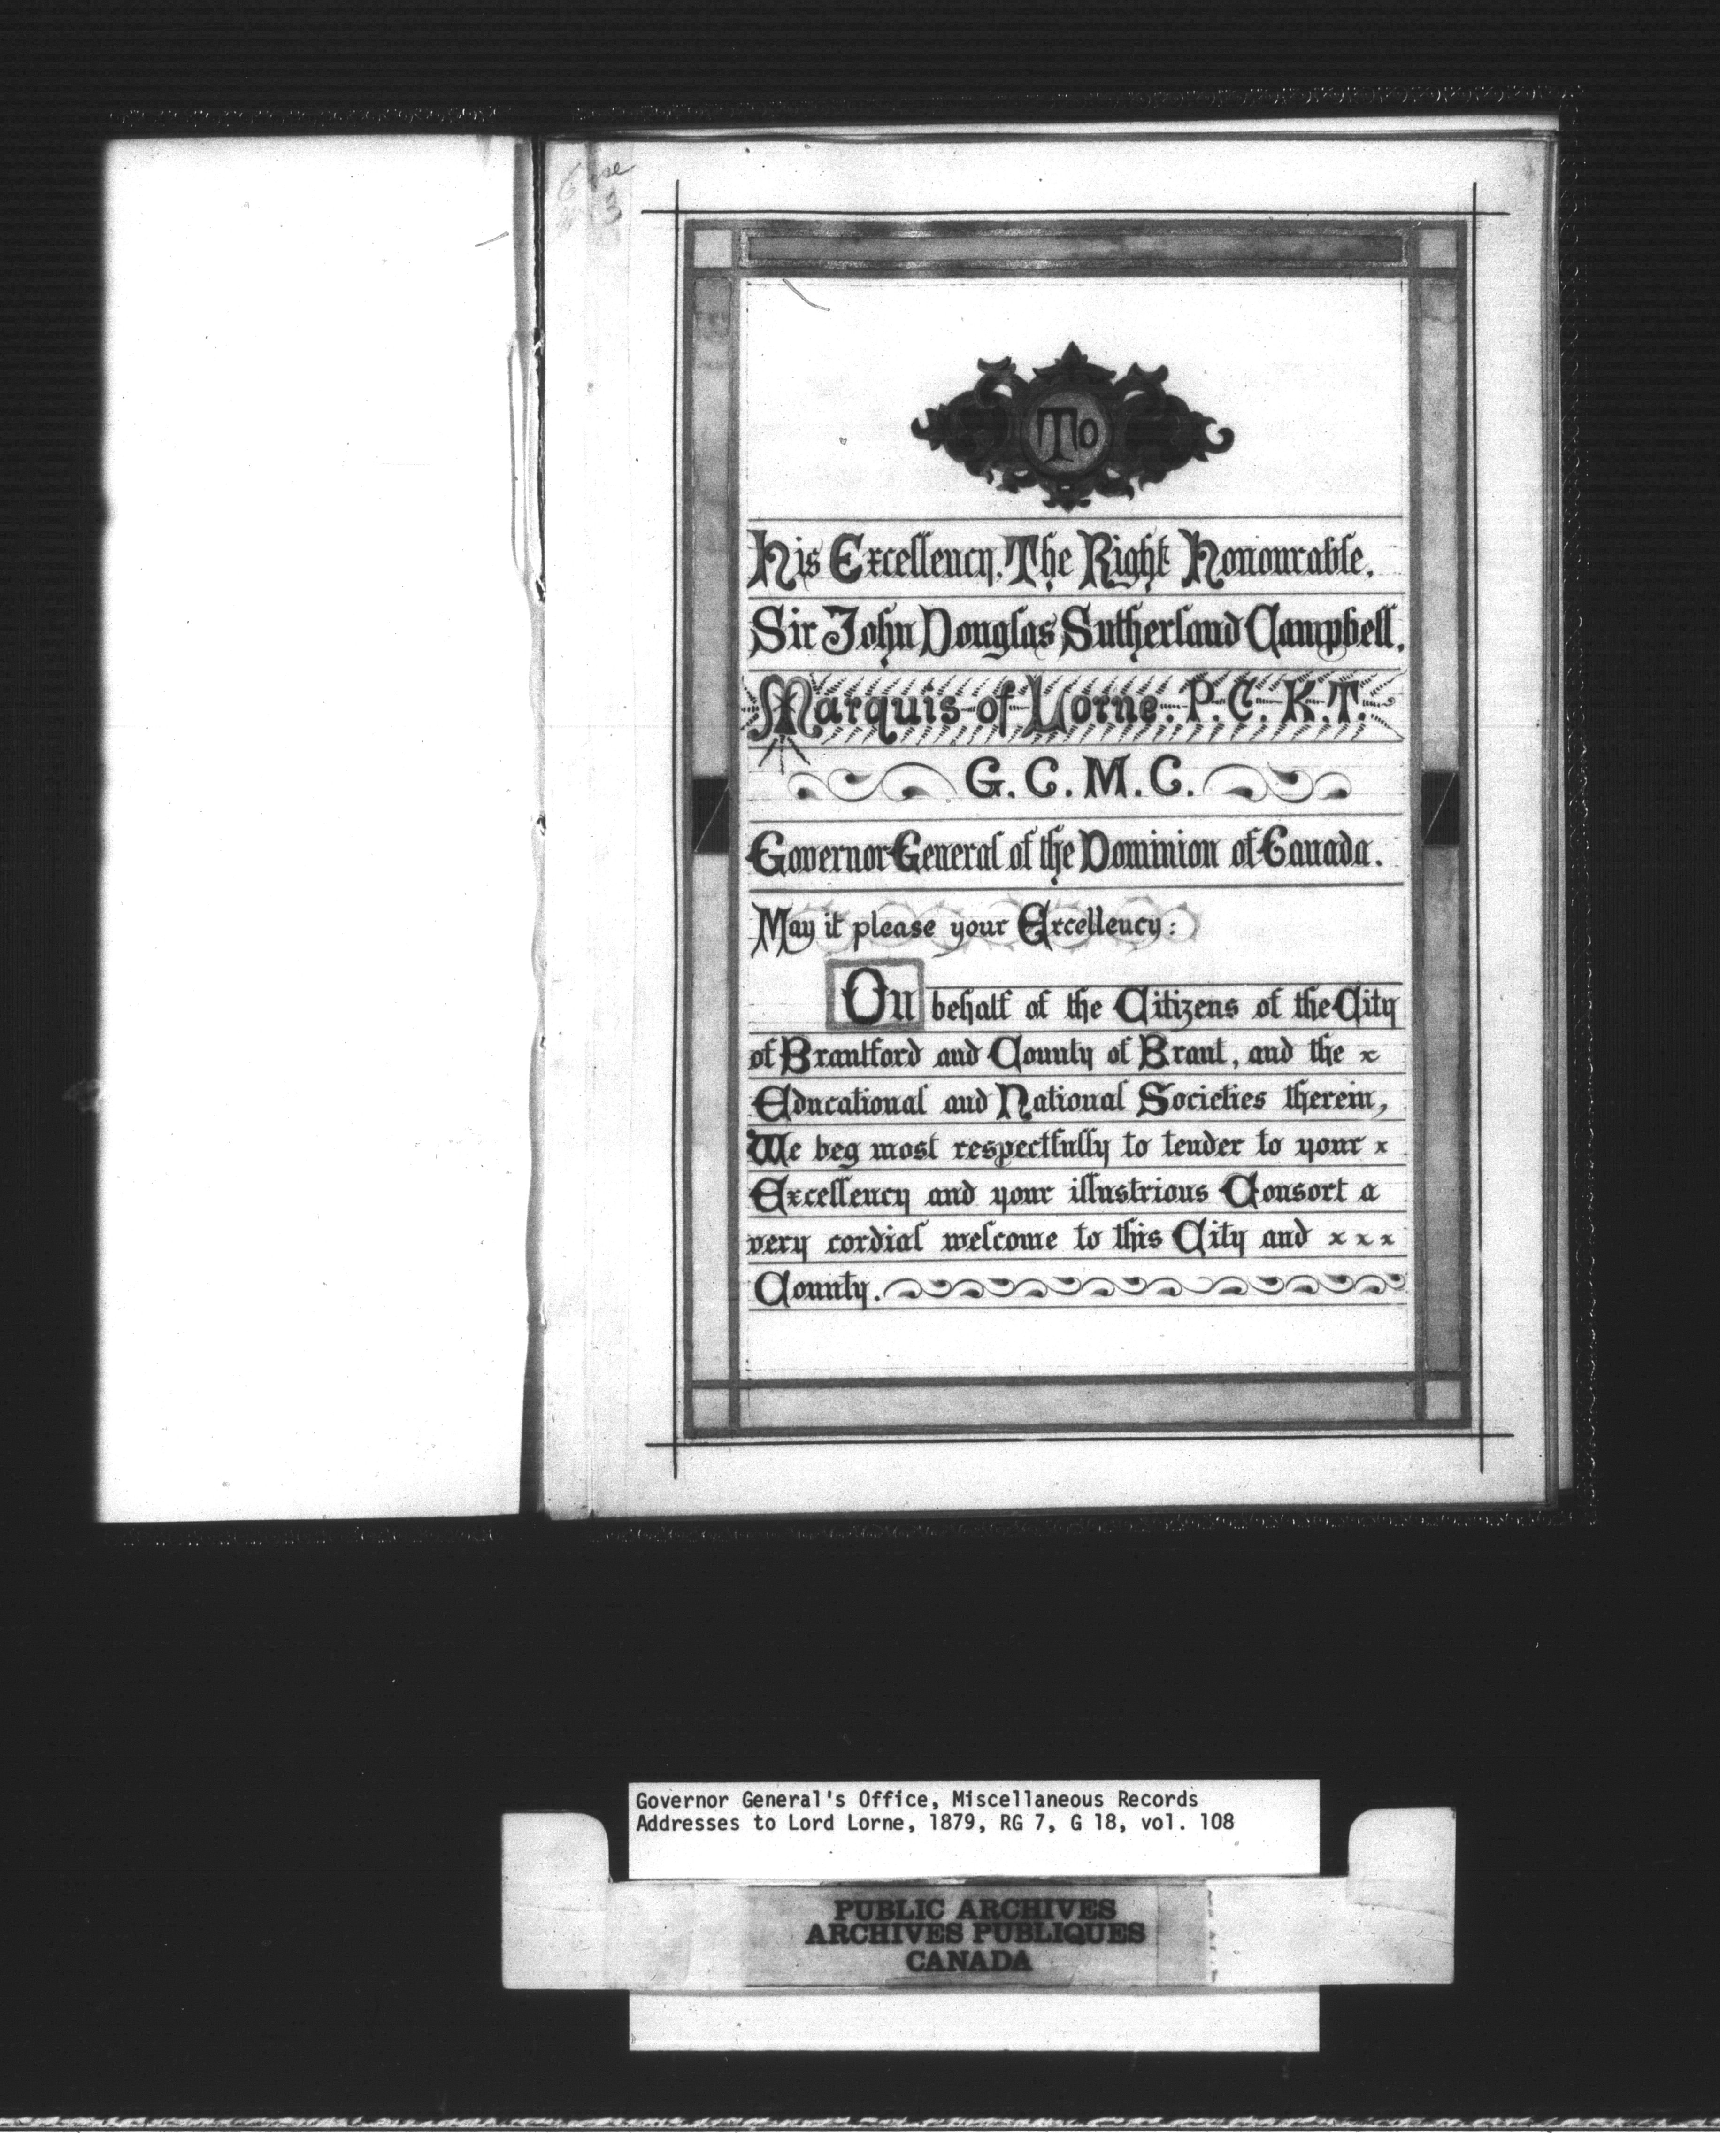 3
To
His Excellency. The Right Honourable.
Sir John Douglas Sutherland Campbell.
Marquis of Lorne. P. C. K. T.
G. C. M. C.
Governor General of the Dominion of Canada.
May it please your Excellency:
On behalf of the Citizens of the City
of Brantford and County of Brant, and the x
Educational and National Societies therein,
We beg most respectfully to tender to your x
Excellency and your illustrious Consort a
very cordial welcome to this City and x x x
County.
Governor General's Office, Miscellaneous Records
Addresses to Lord Lorne, 1879, RG 7, G 18, vol. 108
PUBLIC ARCHIVES
ARCHIVES PUBLIQUES
CANADA